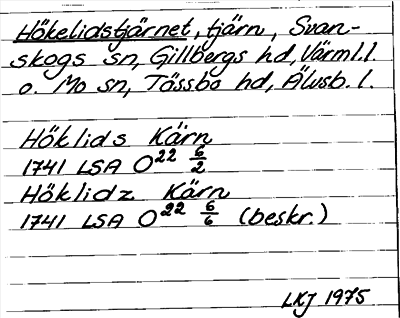 Hökelidstjärnet, tjärn, Svan-
skogs sn, Gillbergs hd, Värml.l.
o. Mo sn, Tössbo hd, Älvsb. l.
Höklids Kärn
1741 LSA O22 6/2
Höklidz Kärn
1741 LSA O22 6/6 (beskr.)
LKJ 1975